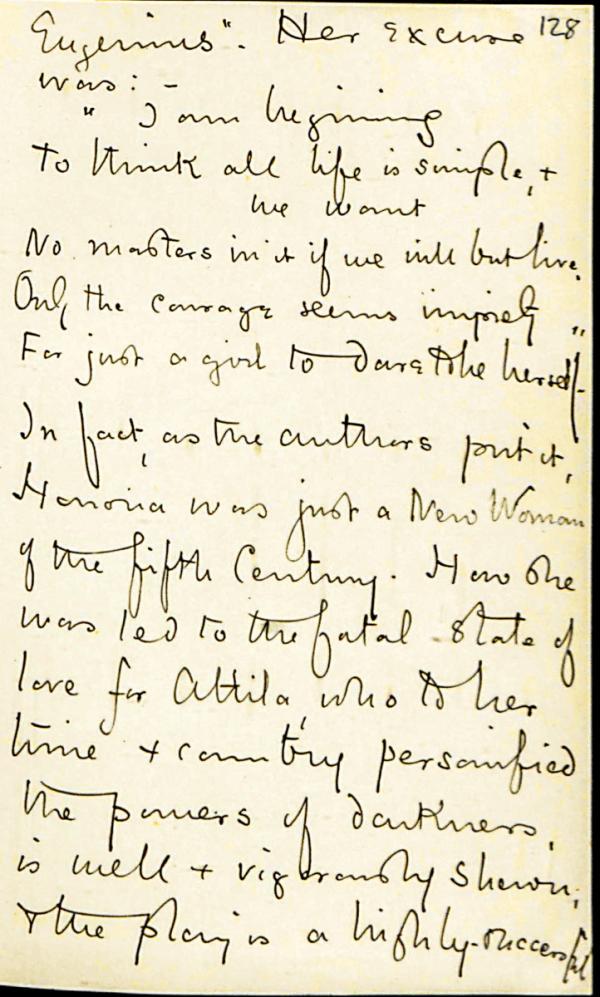 128
Eugenius". Her excuse
was:
" I am begining
to think all life is simple, +
we want
No masters in it if we will but live.
Only the courage seems impiety
For just a girl to dare to be herself."
In fact, as the authors put it,
Honoria was just a New Woman
of the fifth Century. How she
was led to the fatal state of
love for Attila, who to her
time + country personified
the powers of darkness,
is well + vigorously shewn,
+ the play is a highly-successful